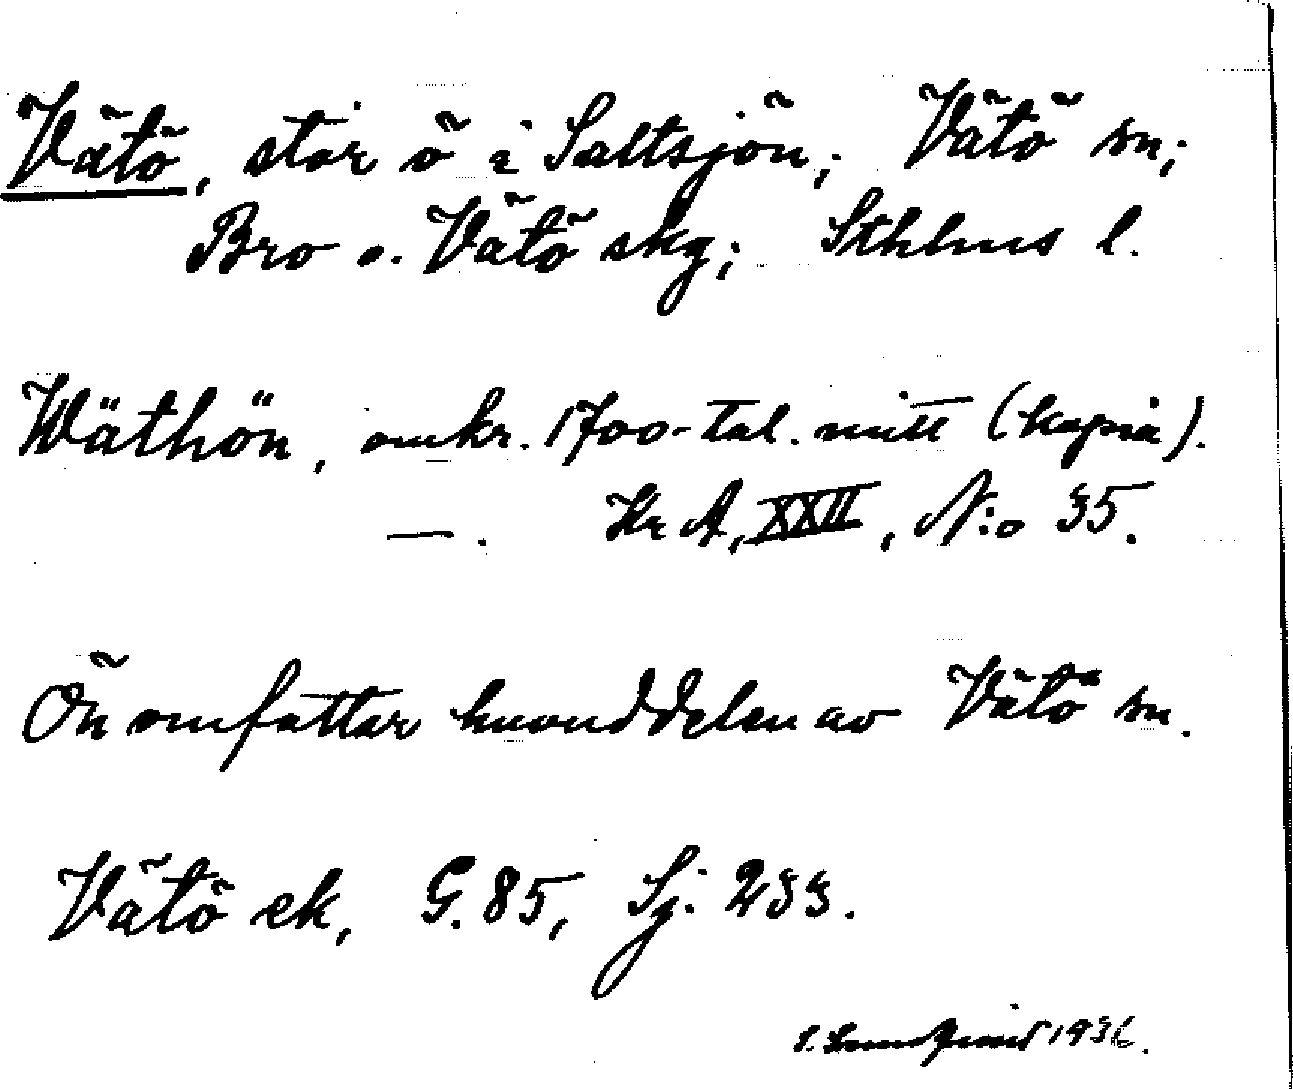 Vätö, stor ö i Saltsjön; Vätö sn;
Bro o. Vätö skg; Sthlms l.
Wäthön, omkr. 1700-tal. mitt (kopia).
— . Kr A, XXII, N:o 35.
Ön omfattar huvuddelen av Vätö sn.
Vätö ek, G. 85, Sj. 233.
1936.